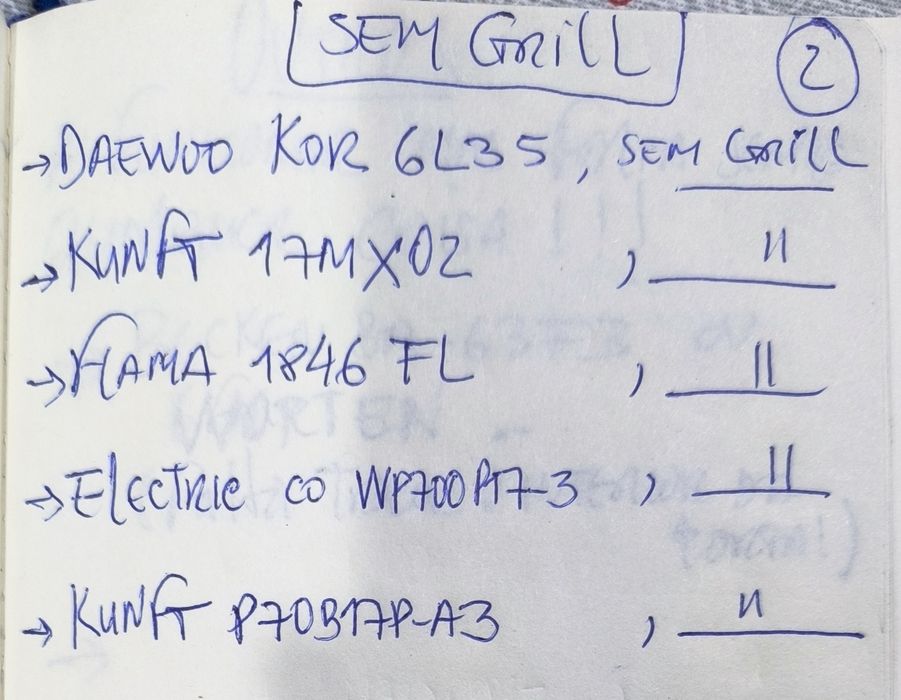 SEM GRILL
2
→ DAEWOO KOR 6L35, SEM GRILL
→ KUNFT 17MX02 , "
→ FLAMA 1846 FL , "
→ ELECTRIC CO WP700P17-3 , "
→ KUNFT P70B17P-A3 , "